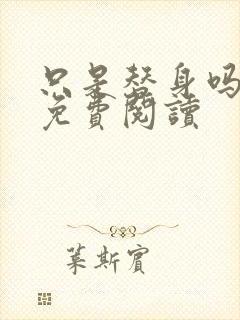 只是替身吗
免費閱讀
葉斯賓